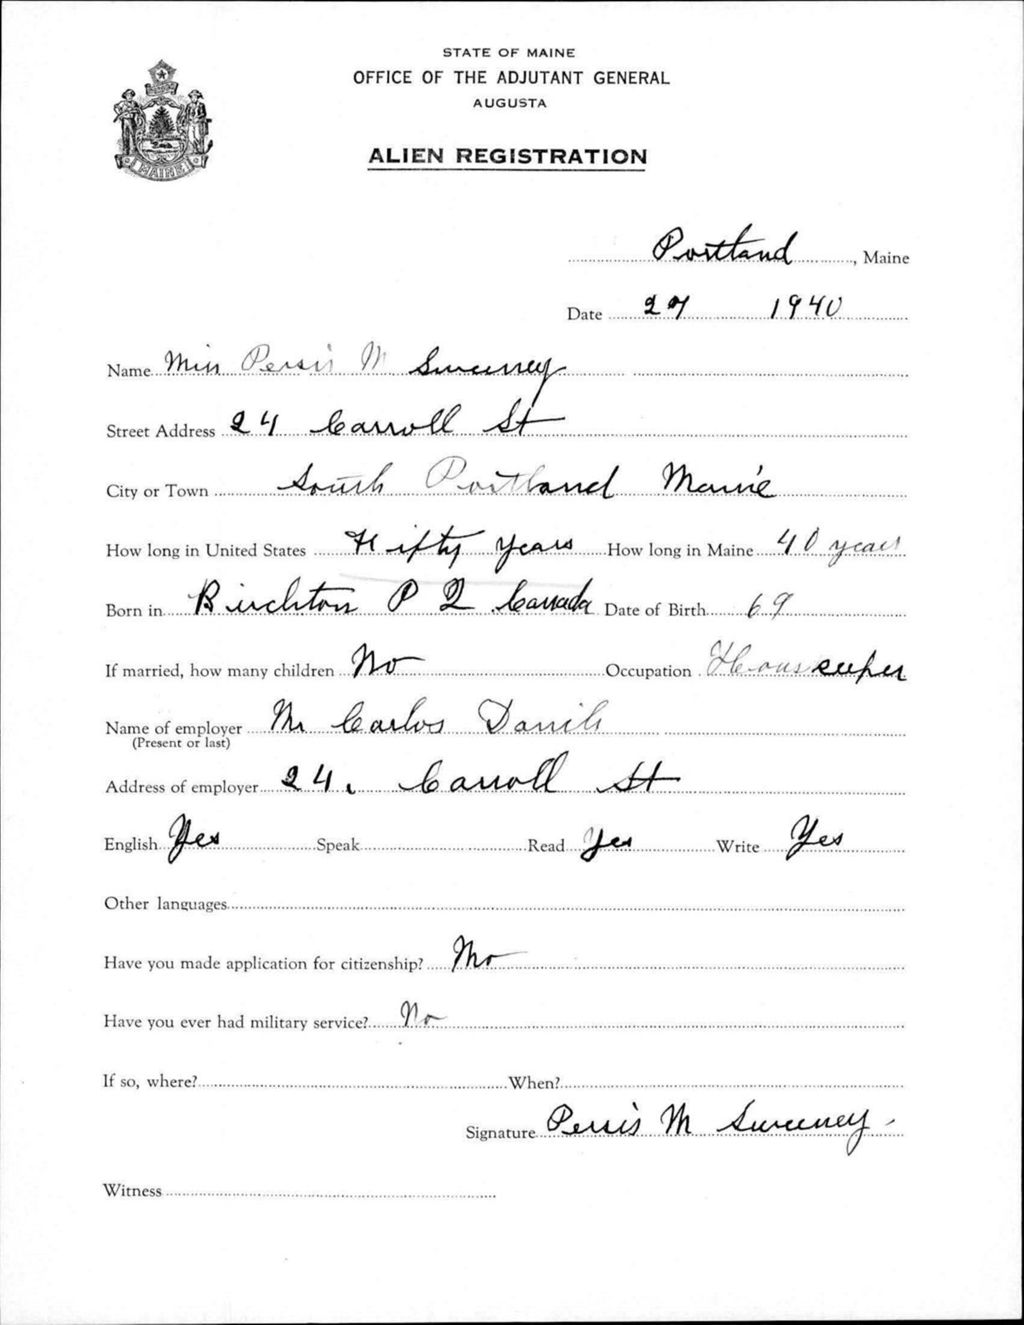 STATE OF MAINE
OFFICE OF THE ADJUTANT GENERAL
AUGUSTA
ALIEN REGISTRATION
MAINE
Portland, Maine
Date 27 1940
Name Miss Persis M Sweeney
Street Address 24 Carroll St
City or Town South Portland Maine
How long in United States Fifty years How long in Maine 40 years
Born in P Q Canada Date of Birth 69
If married, how many children No Occupation Houskeeper
Name of employer Mr Carlos
(Present or last)
Address of employer 24, Carroll St
English Yes Speak Read Yes Write Yes
Other languages
Have you made application for citizenship? No
Have you ever had military service? No
If so, where? When?
Signature Persis M Sweeney
Witness